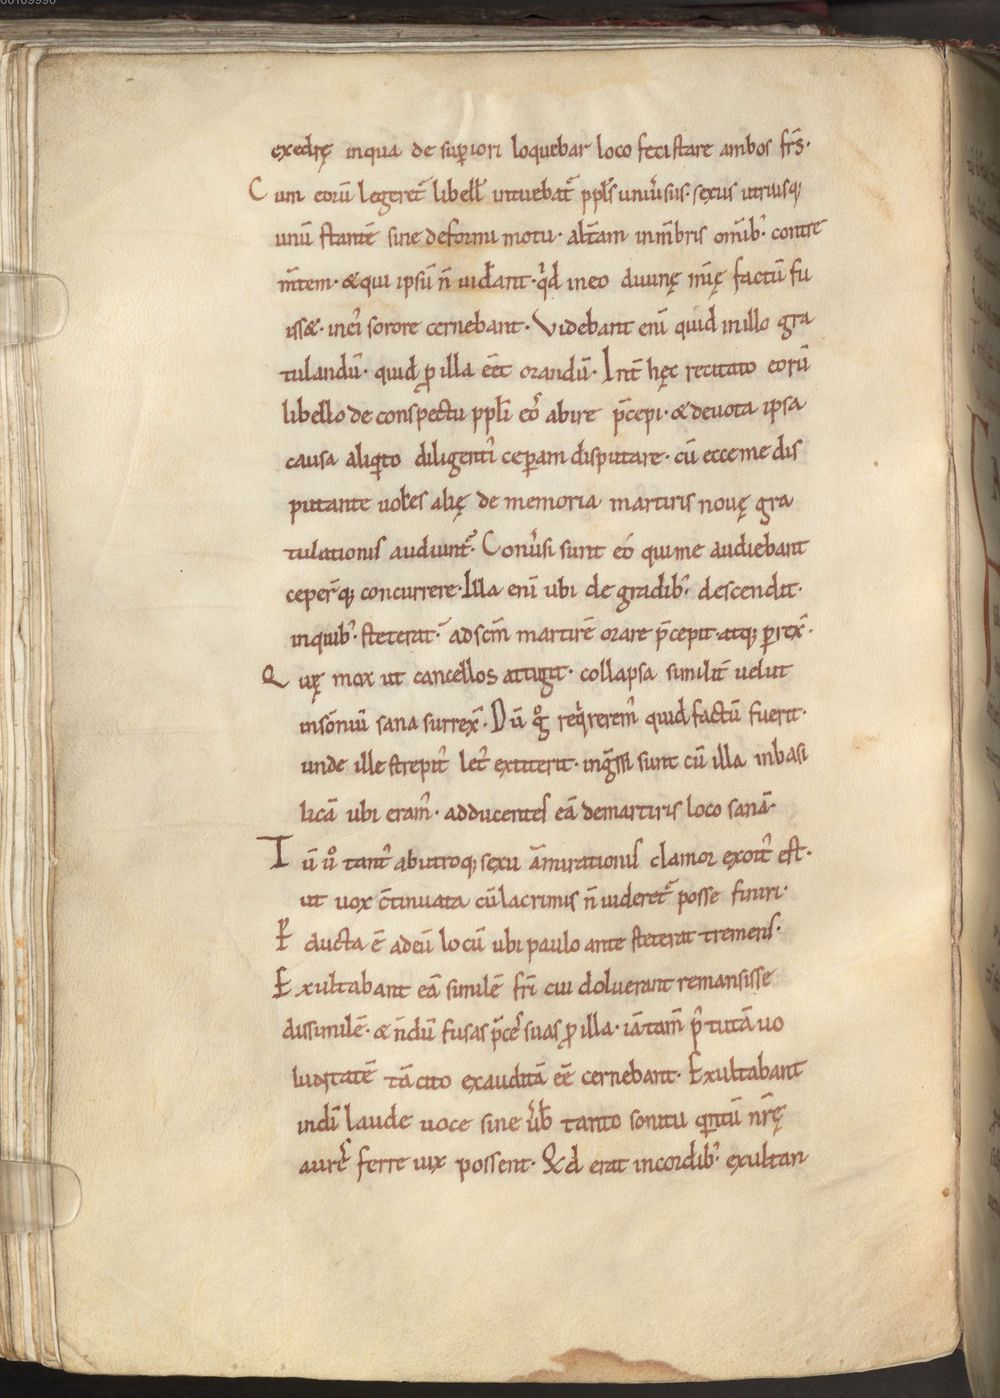 00109990
exedrę inqua de sup̄iori loquebar loco feci stare ambos fr̄s.
Cum eorū legeret᷑ libell᷑ intuebat᷑ ppl̄s uniūsus. sexus utriusq;
unū stantē sine deformi motu. alt̄am inm̄bris omīb᷒. contre
m̄tem. & qui ipsū n̄ uid̄ant. qͥd ineo diuinę mīę factū fu
iss&. inei᷒ sorore cernebant. Videbant enī quid inillo gra
tulandū. quid ꝓ illa eēt orandū. Int̄ hęc recitato eorū
libello de conspectu ppl̄i eo᷑ abire p̄cepi. & deuota ipsa
causa aliqͣto diligenti᷒ cep̄am disputare. cū ecce me dis
putante uoc̄es alię de memoria martiris nouę gra
tulationis audiunt᷑. Conūsi sunt eo qui me audiebant
ceper̄q; concurrere. Illa enī ubi de gradib᷒. descendit.
inquib᷒. steterat. ad sc̄m martirē orare p̄cepit. atq; p̄rex̄.
Quę mox ut cancellos attigit. collapsa similit̄ uelut
insōniū sana surrex̄. Dū gͦ reqͥrerem᷒ quid factū fuerit.
unde ille strepit᷒ let᷒ extiterit. ingͣssi sunt cū illa inbasi
licā ubi eram᷒. adducentes eā demartiris loco sanā.
Tū uͦ tant᷒ abutroq; sexu āmirationis clamor exort᷒ est.
ut uox c̄tinuata cū lacrimis n̄ uideret᷑ posse finiri.
Pducta ē adeū locū ubi paulo ante steterat tremens.
Exultabant eā similē fr̄i cui doluerant remansisse
dissimilē. & n̄dū fusas p̄ces suas ꝓ illa. iā tam̄ p̄ tutā uo
lūtatē tā cito exauditā eē cernebant. Exultabant
indī laude uoce sine ūb̄ tanto sonitu qͣntū nr̄ę
aures ferre uix possent. Qd erat incordib᷒. exultan